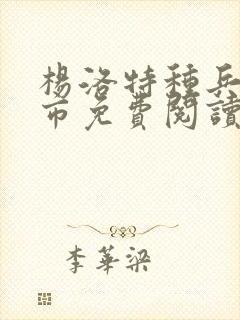 楊洛特種兵
市免費閱讀
李華梁